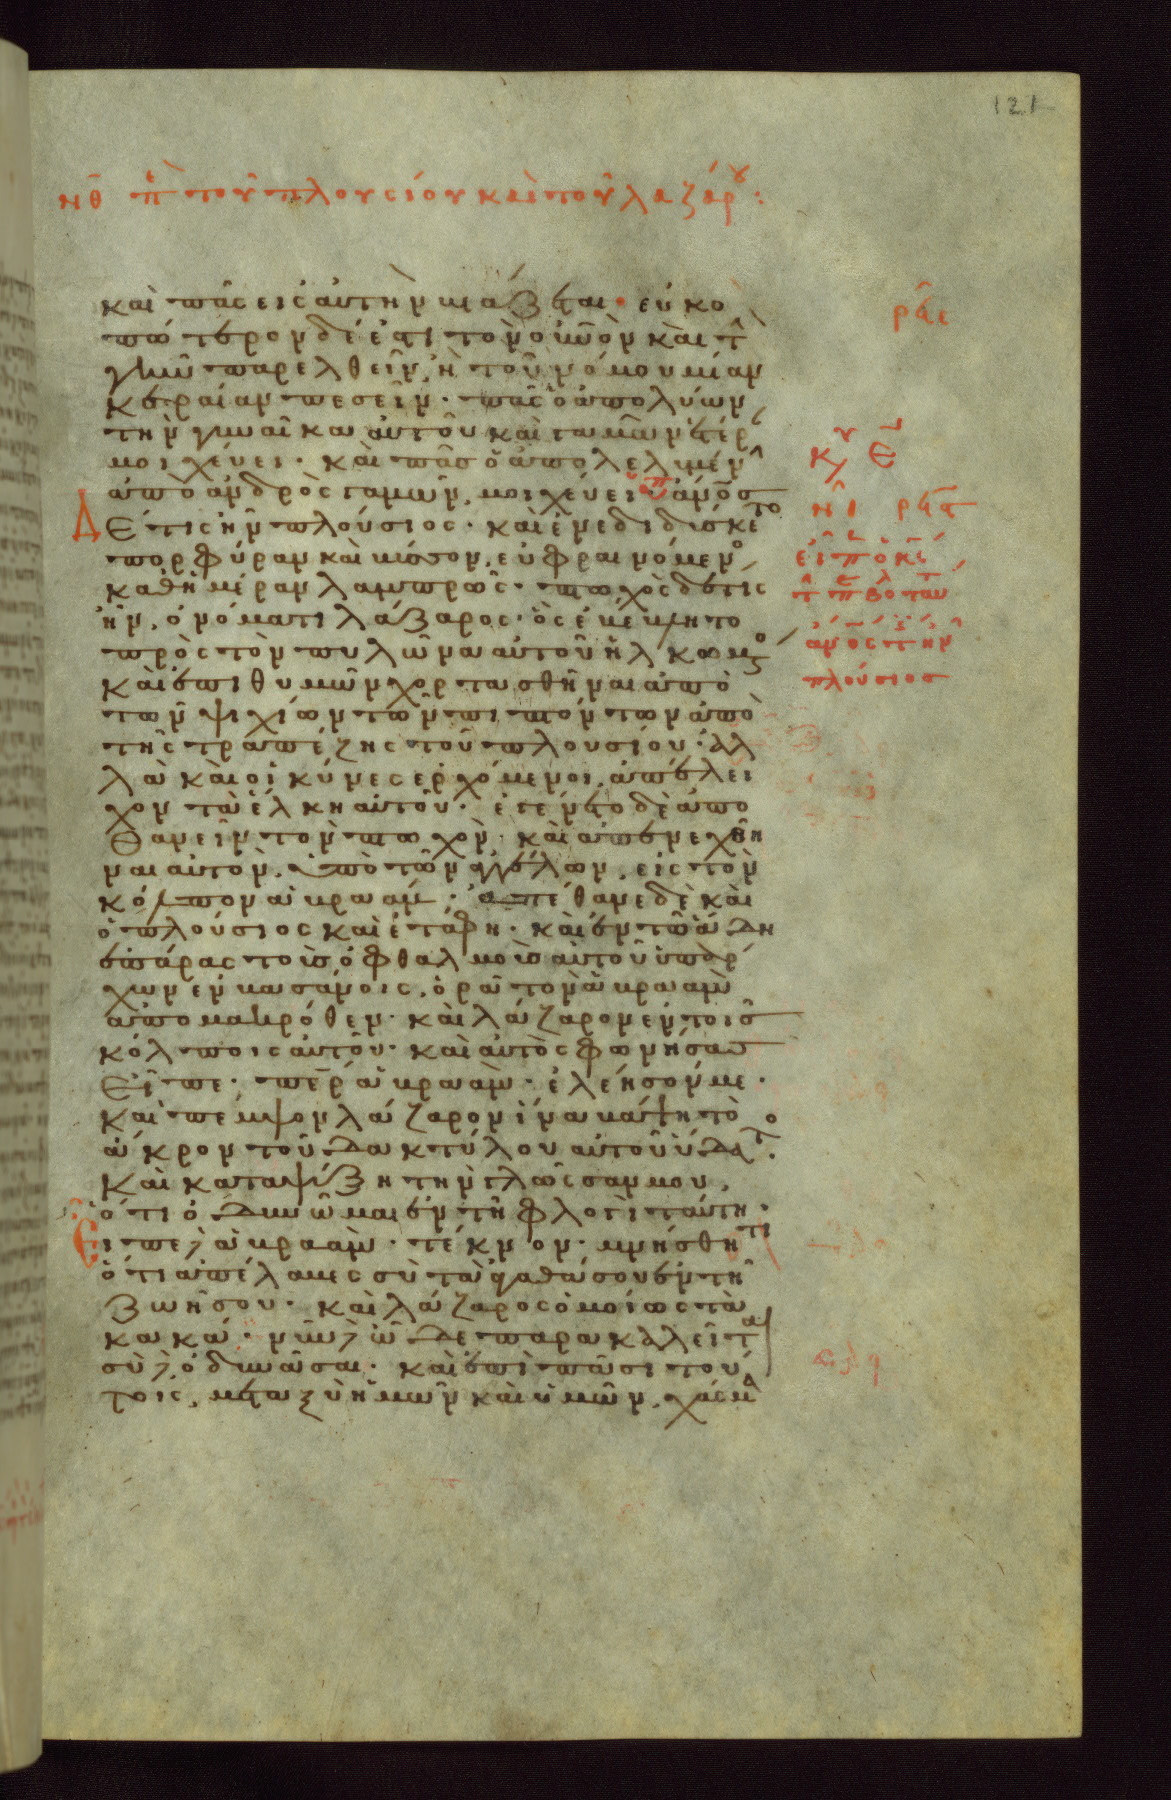 121
νθ πε τοῦ πλουσίου καὶ τοῦ λαζάρου:
καὶ πᾶς εἰς αὐτὴν βιάζεται· εὐκο
πώτερον δέ ἐστι τὸν οὐνὸν καὶ τὴν
γῆν παρελθεῖν, ἢ τοῦ νόμου μίαν
κεραίαν πεσεῖν· πᾶς ὁ ἀπολύων
τὴν γυναῖκα αὐτοῦ καὶ γαμῶν ἑτέρ
μοιχεύει· καὶ πᾶσ ὁ ἀπολελυμένην
ἀπὸ ἀνδρὸς γαμῶν, μοιχεύει· ἄνοσ
Δέ τις ἦν πλούσιος· καὶ ἐνεδιδύσκετο
πορφύραν καὶ βύσσον, εὐφραινόμενο
καθημέραν λαμπρῶς· πτωχὸς δέ τις
ἦν, ὀνόματι λάζαρος· ὃς ἐβέβλητο
πρὸς τὸν πυλῶνα αὐτοῦ ἡλκωμένος
καὶ ἐπιθυμῶν χορτασθῆναι ἀπὸ
τῶν ψιχίων τῶν πιπτόντων ἀπὸ
τῆς τραπέζης τοῦ πλουσίου· ἀλ
λὰ καὶ οἱ κύνες ἐρχόμενοι, ἀπέλει
χον τὰ ἕλκη αὐτοῦ· ἐγένετο δὲ ἀπο
θανεῖν τὸν πτωχὸν· καὶ ἀπενεχθῆ
ναι αὐτὸν, ὑπὸ τῶν ἀγγέλων, εἰς τὸν
κόλπον ἀβραάμ· ἀπέθανε δὲ καὶ
ὁ πλούσιος καὶ ἐτάφη· καὶ ἐν τῶ ἅδη
ἐπάρας τοὺσ ὀφθαλμοὺσ αὐτοῦ ὑπάρ
χων ἐν βασάνοις, ὁρᾶ τὸν ἀβραὰμ
ἀπὸ μακρόθεν· καὶ λάζαρον ἐν τοῖσ
κόλποις αὐτοῦ· καὶ αὐτὸς φωνήσασ
εἶπε· πέρ ἀβραὰμ· ἐλέησόν με·
καὶ πέμψον λάζαρον ἵνα βάψη τὸ
ἄκρον τοῦ δακτύλου αὐτοῦ ὕδατος·
καὶ καταψύξη τὴν γλῶσσαν μου,
ὅτι ὀδυνῶμαι ἐν τῆ φλογὶ ταύτη·
Εἶπε δὲ ἀβραὰμ· τέκνον· μνήσθητι
ὅτι ἀπέλαβες σὺ τὰ ἀγαθά σου ἐν τῆ
ζωῆ σου· καὶ λάζαρος ὁμοίως τὰ
κακά· νῦν δὲ ὧδε παρακαλεῖται
σὺ δὲ ὀδυνᾶσαι· καὶ ἐπὶ πᾶσι τού
τοις, μεταξὺ ἡμῶν καὶ ὑμῶν, χάσμα
ἄνος τις ἦν
πλούσιοσ